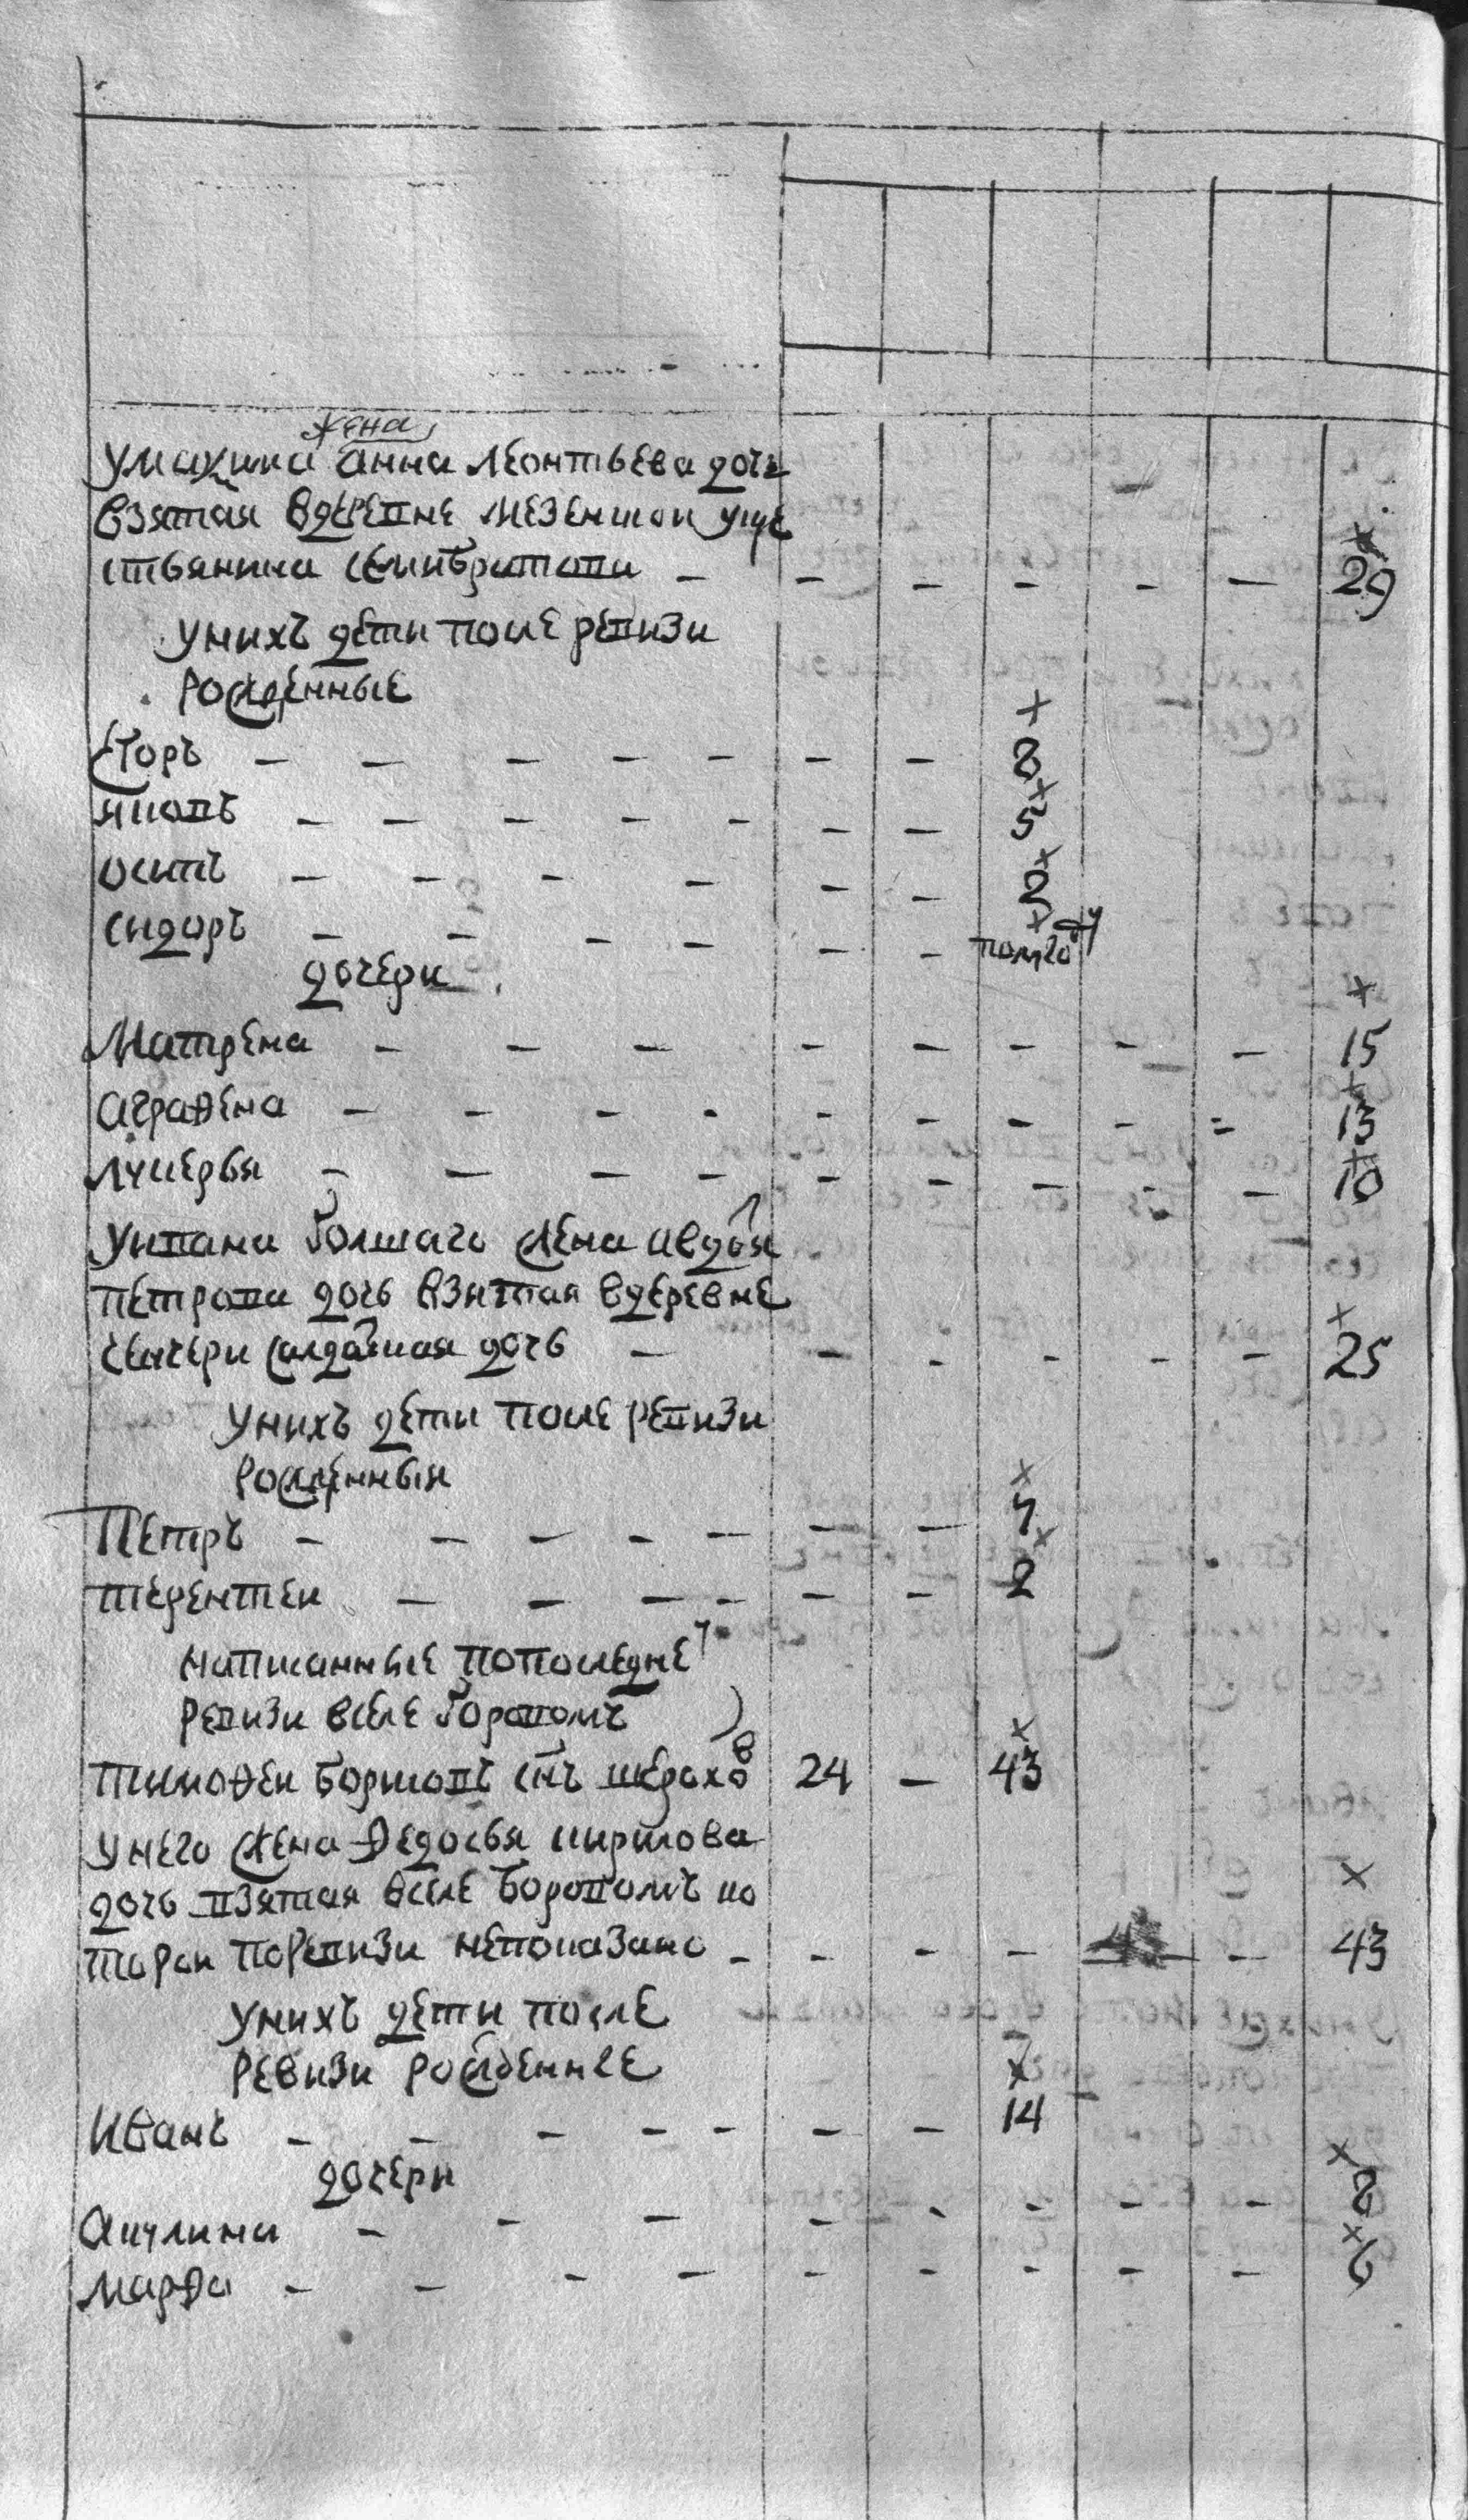 жена
умакима анна леонтьева дочь
взятая вдеревне мезенкои уке
стьянина селиверстова — — — — — — 29
унихъ дети после ревизи
рожденные
Егоръ — — — — — — — 8
яковъ — — — — — — — 5
осипъ — — — — — — 2
сидоръ — — — — — — полгоду
дочери
Матрена — — — — — — — — 15
аграфена — — — — — — — — 13
лукерья — — — — — — — — — 10
уивана болшаго жена авдотья
петрова дочь взятая вдеревне
салдацкая дочь — — — — — — 25
унихъ дети после ревизи
рожденныя
Петръ — — — — — — — 4
терентеи — — — — — — 2
написанные попоследне
ревизи вселе боровомъ
тимофеи борисовъ снъ шерохов 24 — 43
унего жена федосья кирилова
дочь взятая вселе боровомъ ко
торои поревизи непоказано — — — — — 43
унихъ дети после
ревизи рожденные
Иванъ — — — — — — — 14
дочери
акулина — — — — — — — — 8
марфа — — — — — — — — — 6